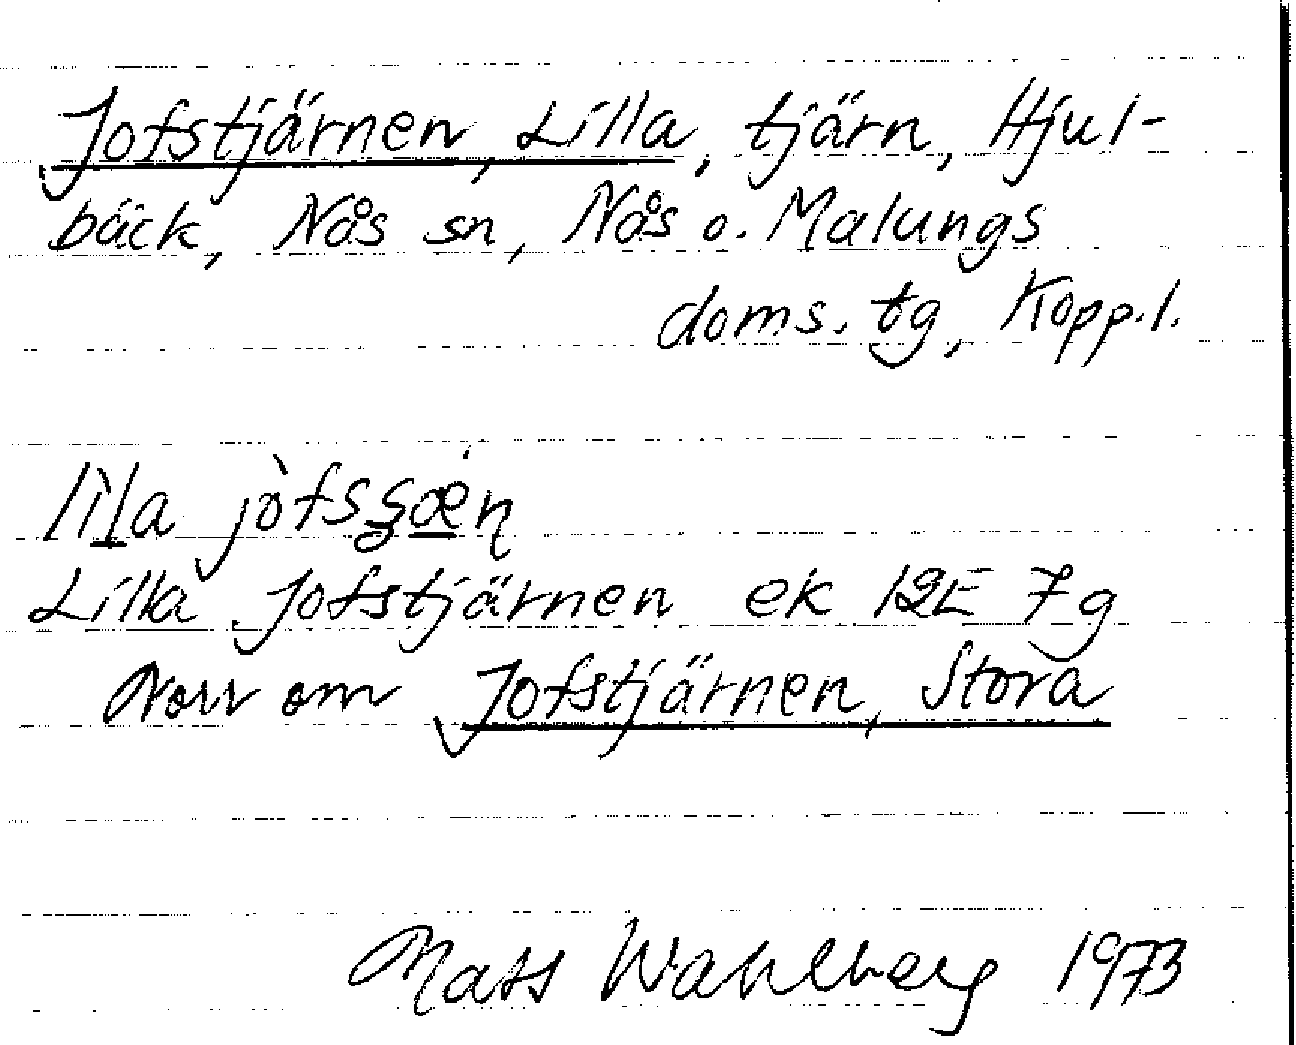 Jofstjärnen, Lilla, tjärn, Hjul-
bäck, Nås sn, Nås o. Malungs
doms. tg, Kopp.l.
lilla jòfsʂæ̀ɳ
Lilla Jofstjärnen ek 12E 7g
Norr om Jofstjärnen, Stora
Mats Wahlberg 1973